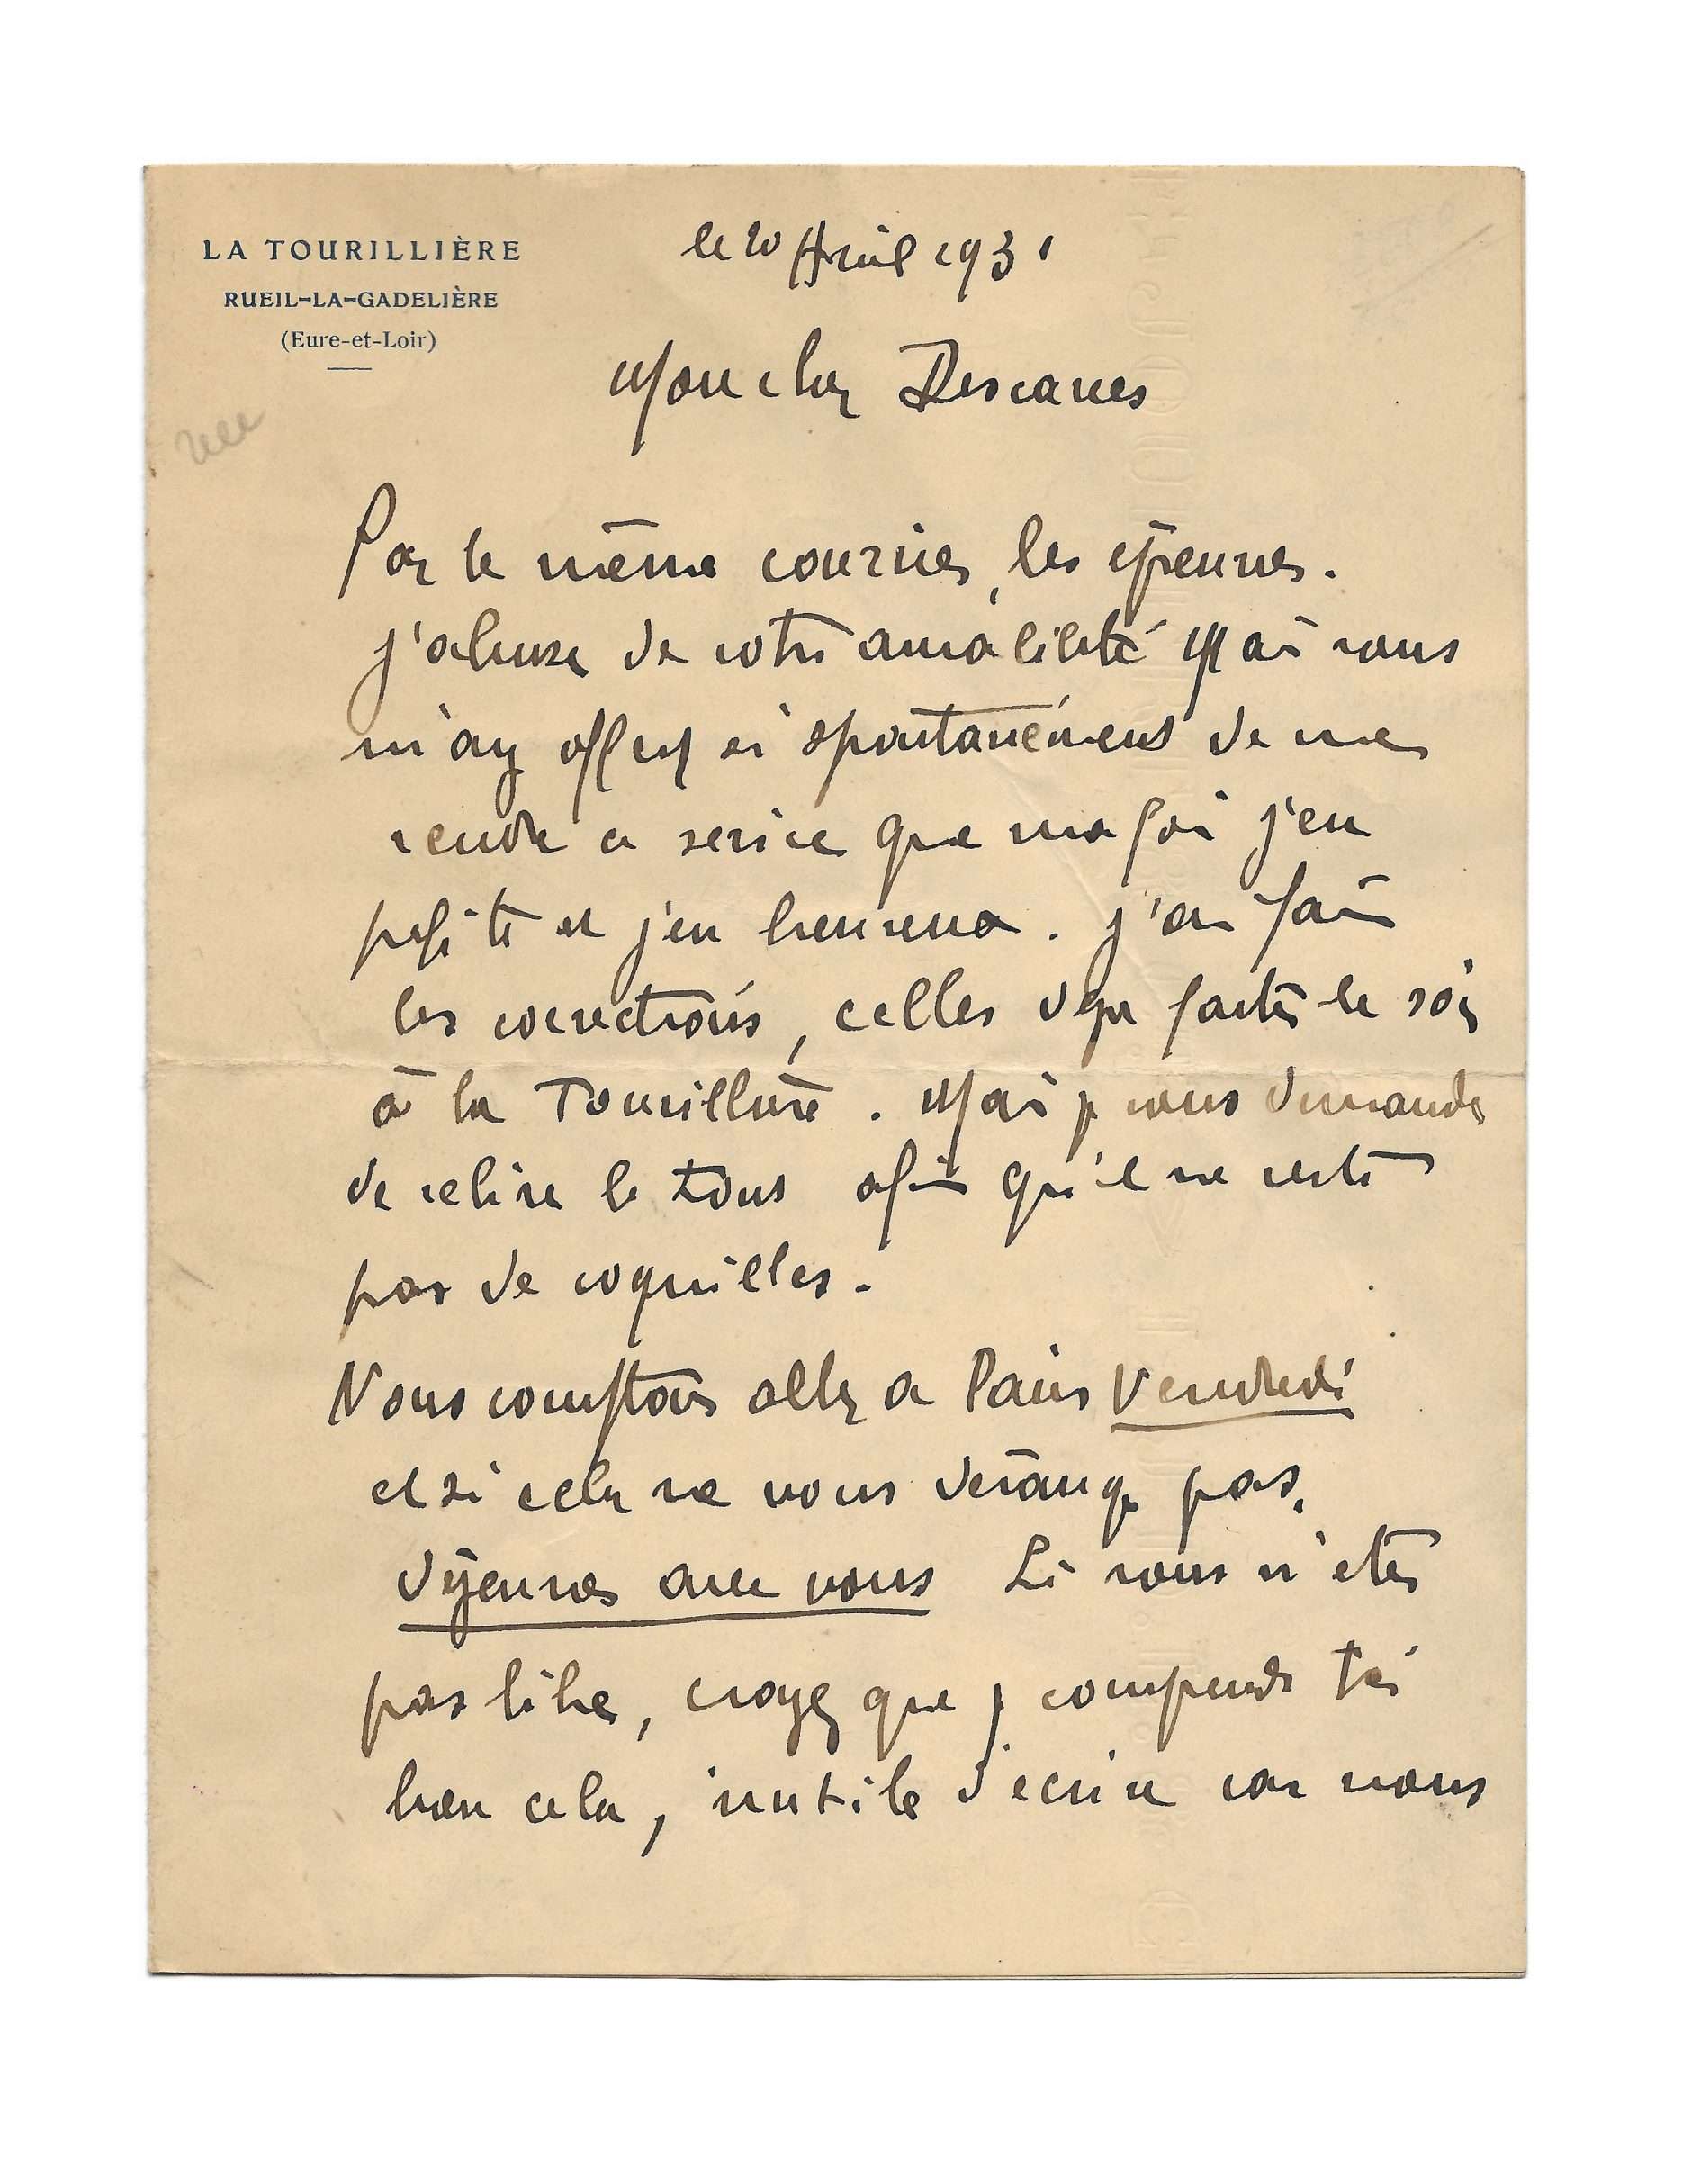 LA TOURILLIÈRE
RUEIL-LA-GADELIÈRE
(Eure-et-Loir)
le 20 Avril 1931
Mon cher Descaves
Par le même courrier, les épreuves.
J'abuse de votre amabilité Mais vous
m'avez offert si spontanément de me
rendre ce service que ma foi j'en
profite et j'en heureux. J'ai fait
les corrections, celles déjà faites le soir
à la Tourillière. Mais je vous demande
de relire le tous afin qu'il ne reste
pas de coquilles.
Nous comptons aller a Paris Vendredi
et si cela ne vous dérange pas,
déjeuner avec vous Si vous n'êtes
pas libre, croyez que je comprends très
bien cela, inutile d'écrire car nous